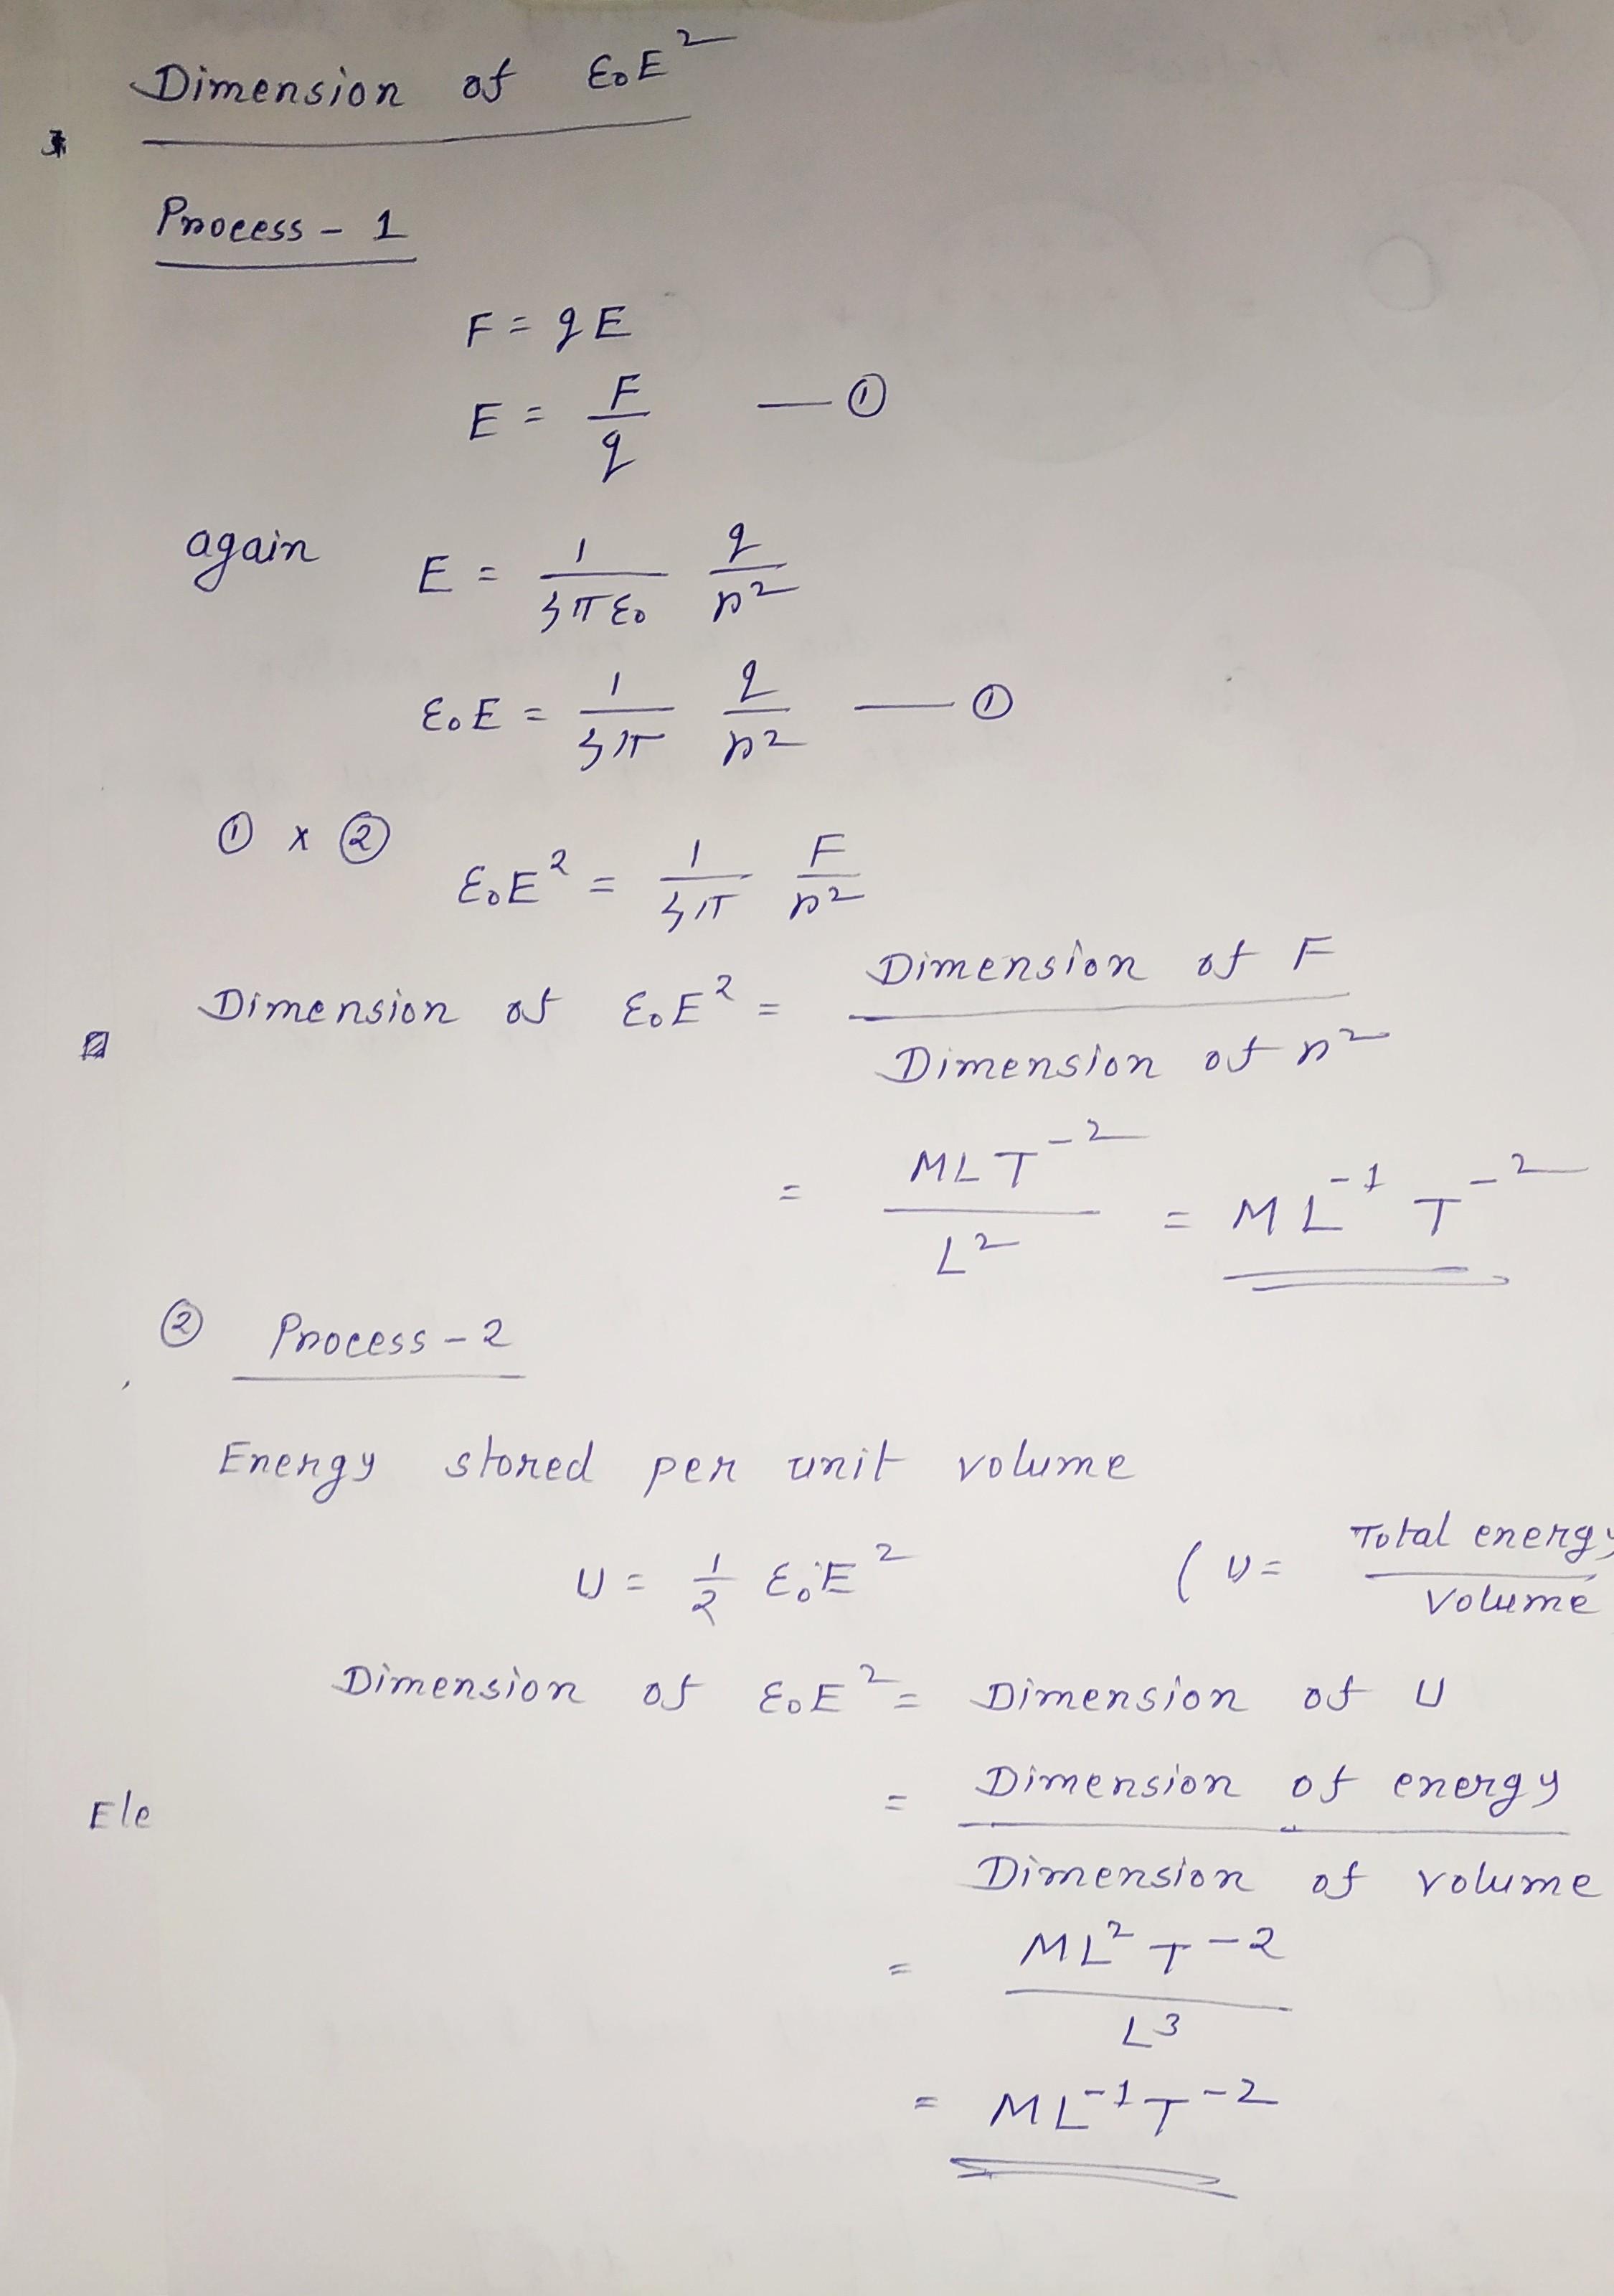 Dimension of ε₀E²
Process - 1
F = qE
E = F/q — ①
again E = 1/4πε₀ q/r²
ε₀E = 1/4π q/r² — ①
① × ② ε₀E² = 1/4π F/r²
Dimension of ε₀E² = Dimension of F / Dimension of r²
= MLT⁻² / L² = ML⁻¹T⁻²
② Process - 2
Energy stored per unit volume
U = 1/2 ε₀E² ( U = Total energy / Volume
Dimension of ε₀E² = Dimension of U
Ele = Dimension of energy / Dimension of volume
= ML²T⁻² / L³
= ML⁻¹T⁻²